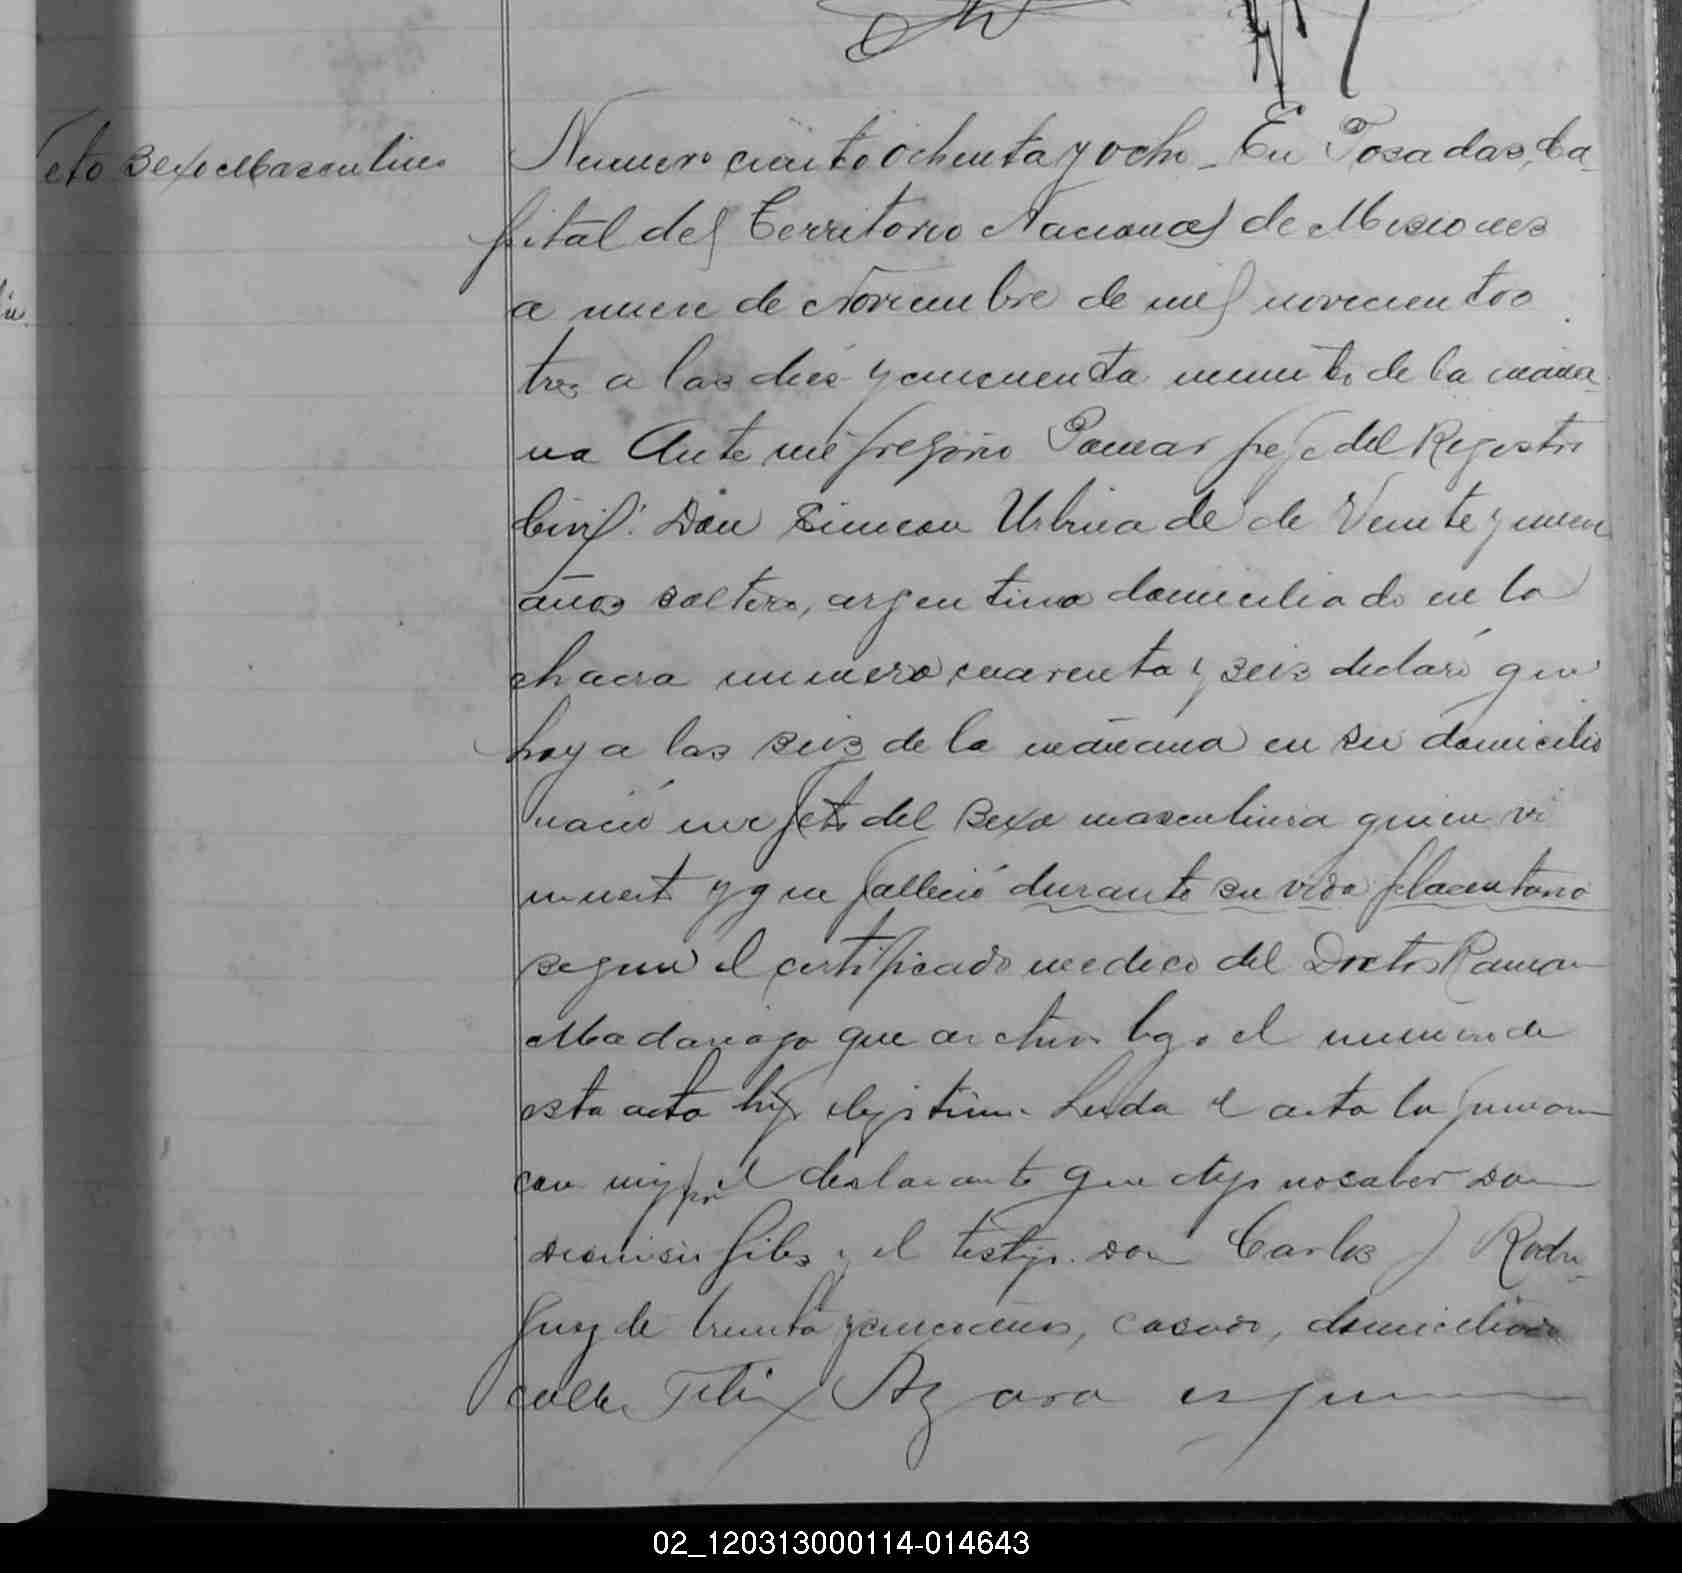 eto Sexo Masculino
Numero ciento ochenta y ocho - En Posadas, Ca-
pital del Territorio Nacional de Misiones
a nueve de Noviembre de mil novecientos
tres a las dies y cincuenta minutos de la maña-
na Ante mi Gregorio Pomar Jefe del Registro
Civil: Don Simeon Urbina de de Veinte y nueve
años soltero, argentino domiciliado en la
chacra numero cuarenta y seis declaró que
hoy a las seis de la mañana en su domicilio
nació un feto del sexo masculino quien vi
muerto y que falleció durante su vida placentaria
segun el certificado medico del Doctor Ramon
Madariaga que archivo bajo el numero de
esta acta hijo ilejitimo. Leida el acta la firmaron
con migo por el declarante que dijo no saber don
Dionisio Giles y el testigo don Carlos J Rodri-
guez de treinta y cinco años, casado, domiciliado
calle Felix Azara esquina
02_120313000114-014643